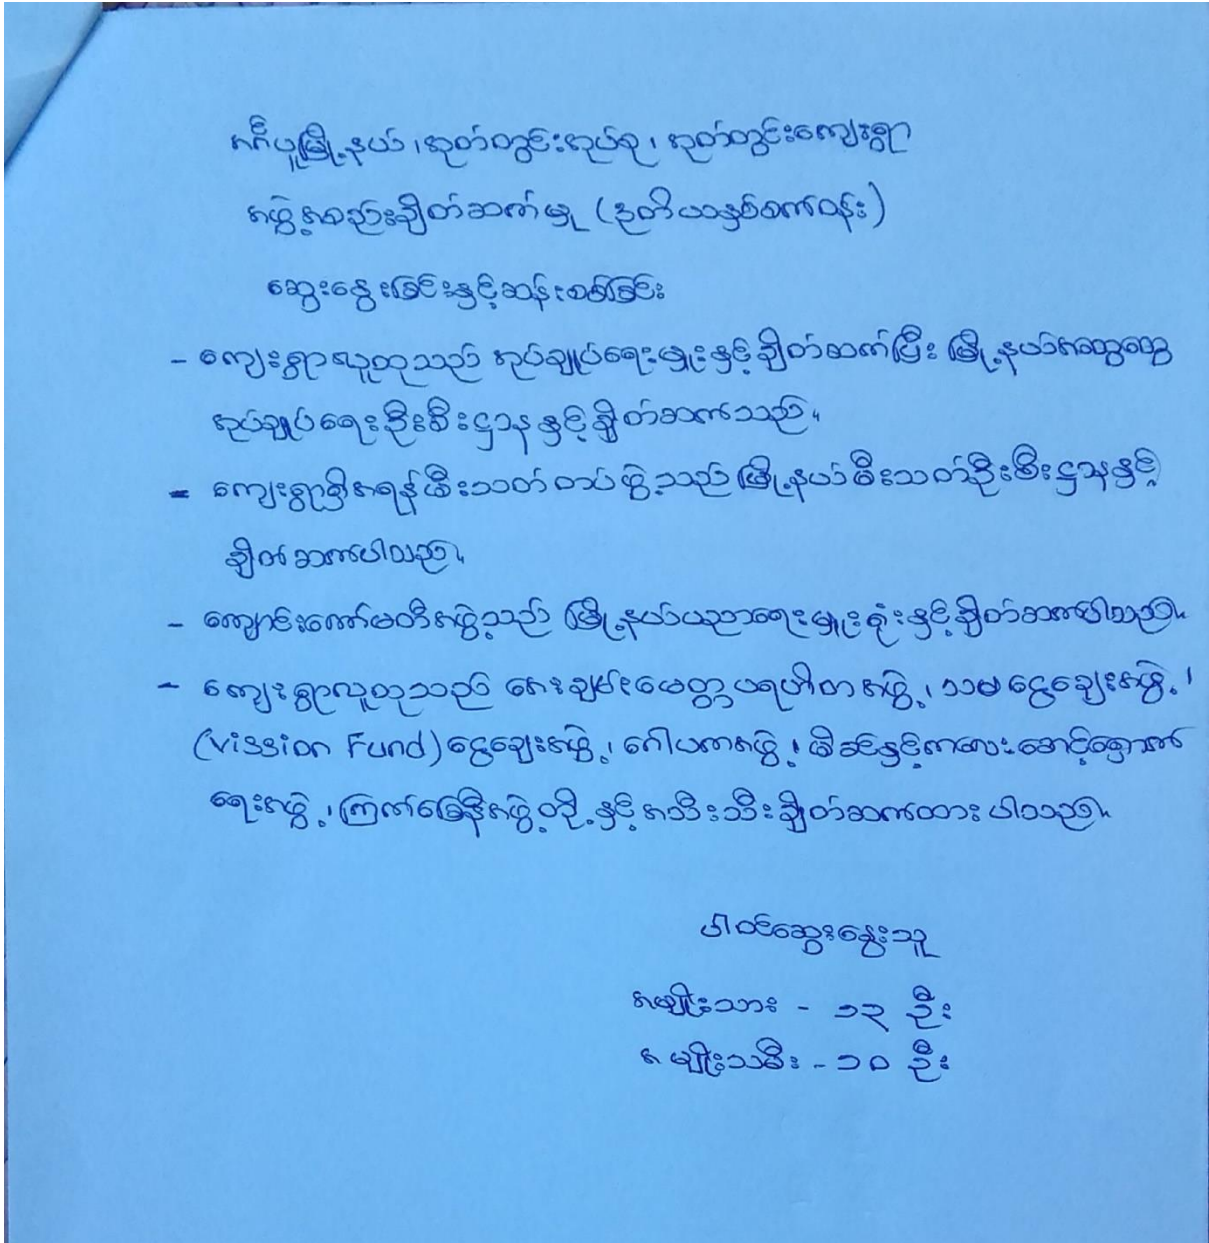 အင်္ဂပူမြို့နယ်၊ အုတ်တွင်းအုပ်စု၊ အုတ်တွင်းကျေးရွာ
အဖွဲ့အစည်းချိတ်ဆက်မှု (ဒုတိယနှစ်စက်ဝန်း)
ဆွေးနွေးခြင်းနှင့်ဆန်းစစ်ခြင်း
- ကျေးရွာလူထုသည် အုပ်ချုပ်ရေးမှူးနှင့်ချိတ်ဆက်ပြီး မြို့နယ်အထွေထွေ
အုပ်ချုပ်ရေးဦးစီးဌာနနှင့်ချိတ်ဆက်သည်။
- ကျေးရွာရှိအရန်မီးသတ်တပ်ဖွဲ့သည် မြို့နယ်မီးသတ်ဦးစီးဌာနနှင့်
ချိတ်ဆက်ပါသည်။
- ကျောင်းကော်မတီအဖွဲ့သည် မြို့နယ်ပညာရေးမှူးရုံးနှင့်ချိတ်ဆက်ပါသည်။
- ကျေးရွာလူထုသည် အေးချမ်းမေတ္တာပရဟိတအဖွဲ့၊ သမငွေချေးအဖွဲ့၊
(Vission Fund) ငွေချေးအဖွဲ့၊ ဂေါပကအဖွဲ့၊ မိခင်နှင့်ကလေးစောင့်ရှောက်
ရေးအဖွဲ့၊ ကြက်ခြေနီအဖွဲ့တို့နှင့်အသီးသီးချိတ်ဆက်ထားပါသည်။
ပါဝင်ဆွေးနွေးသူ
အမျိုးသား - ၁၃ ဦး
အမျိုးသမီး - ၁၀ ဦး